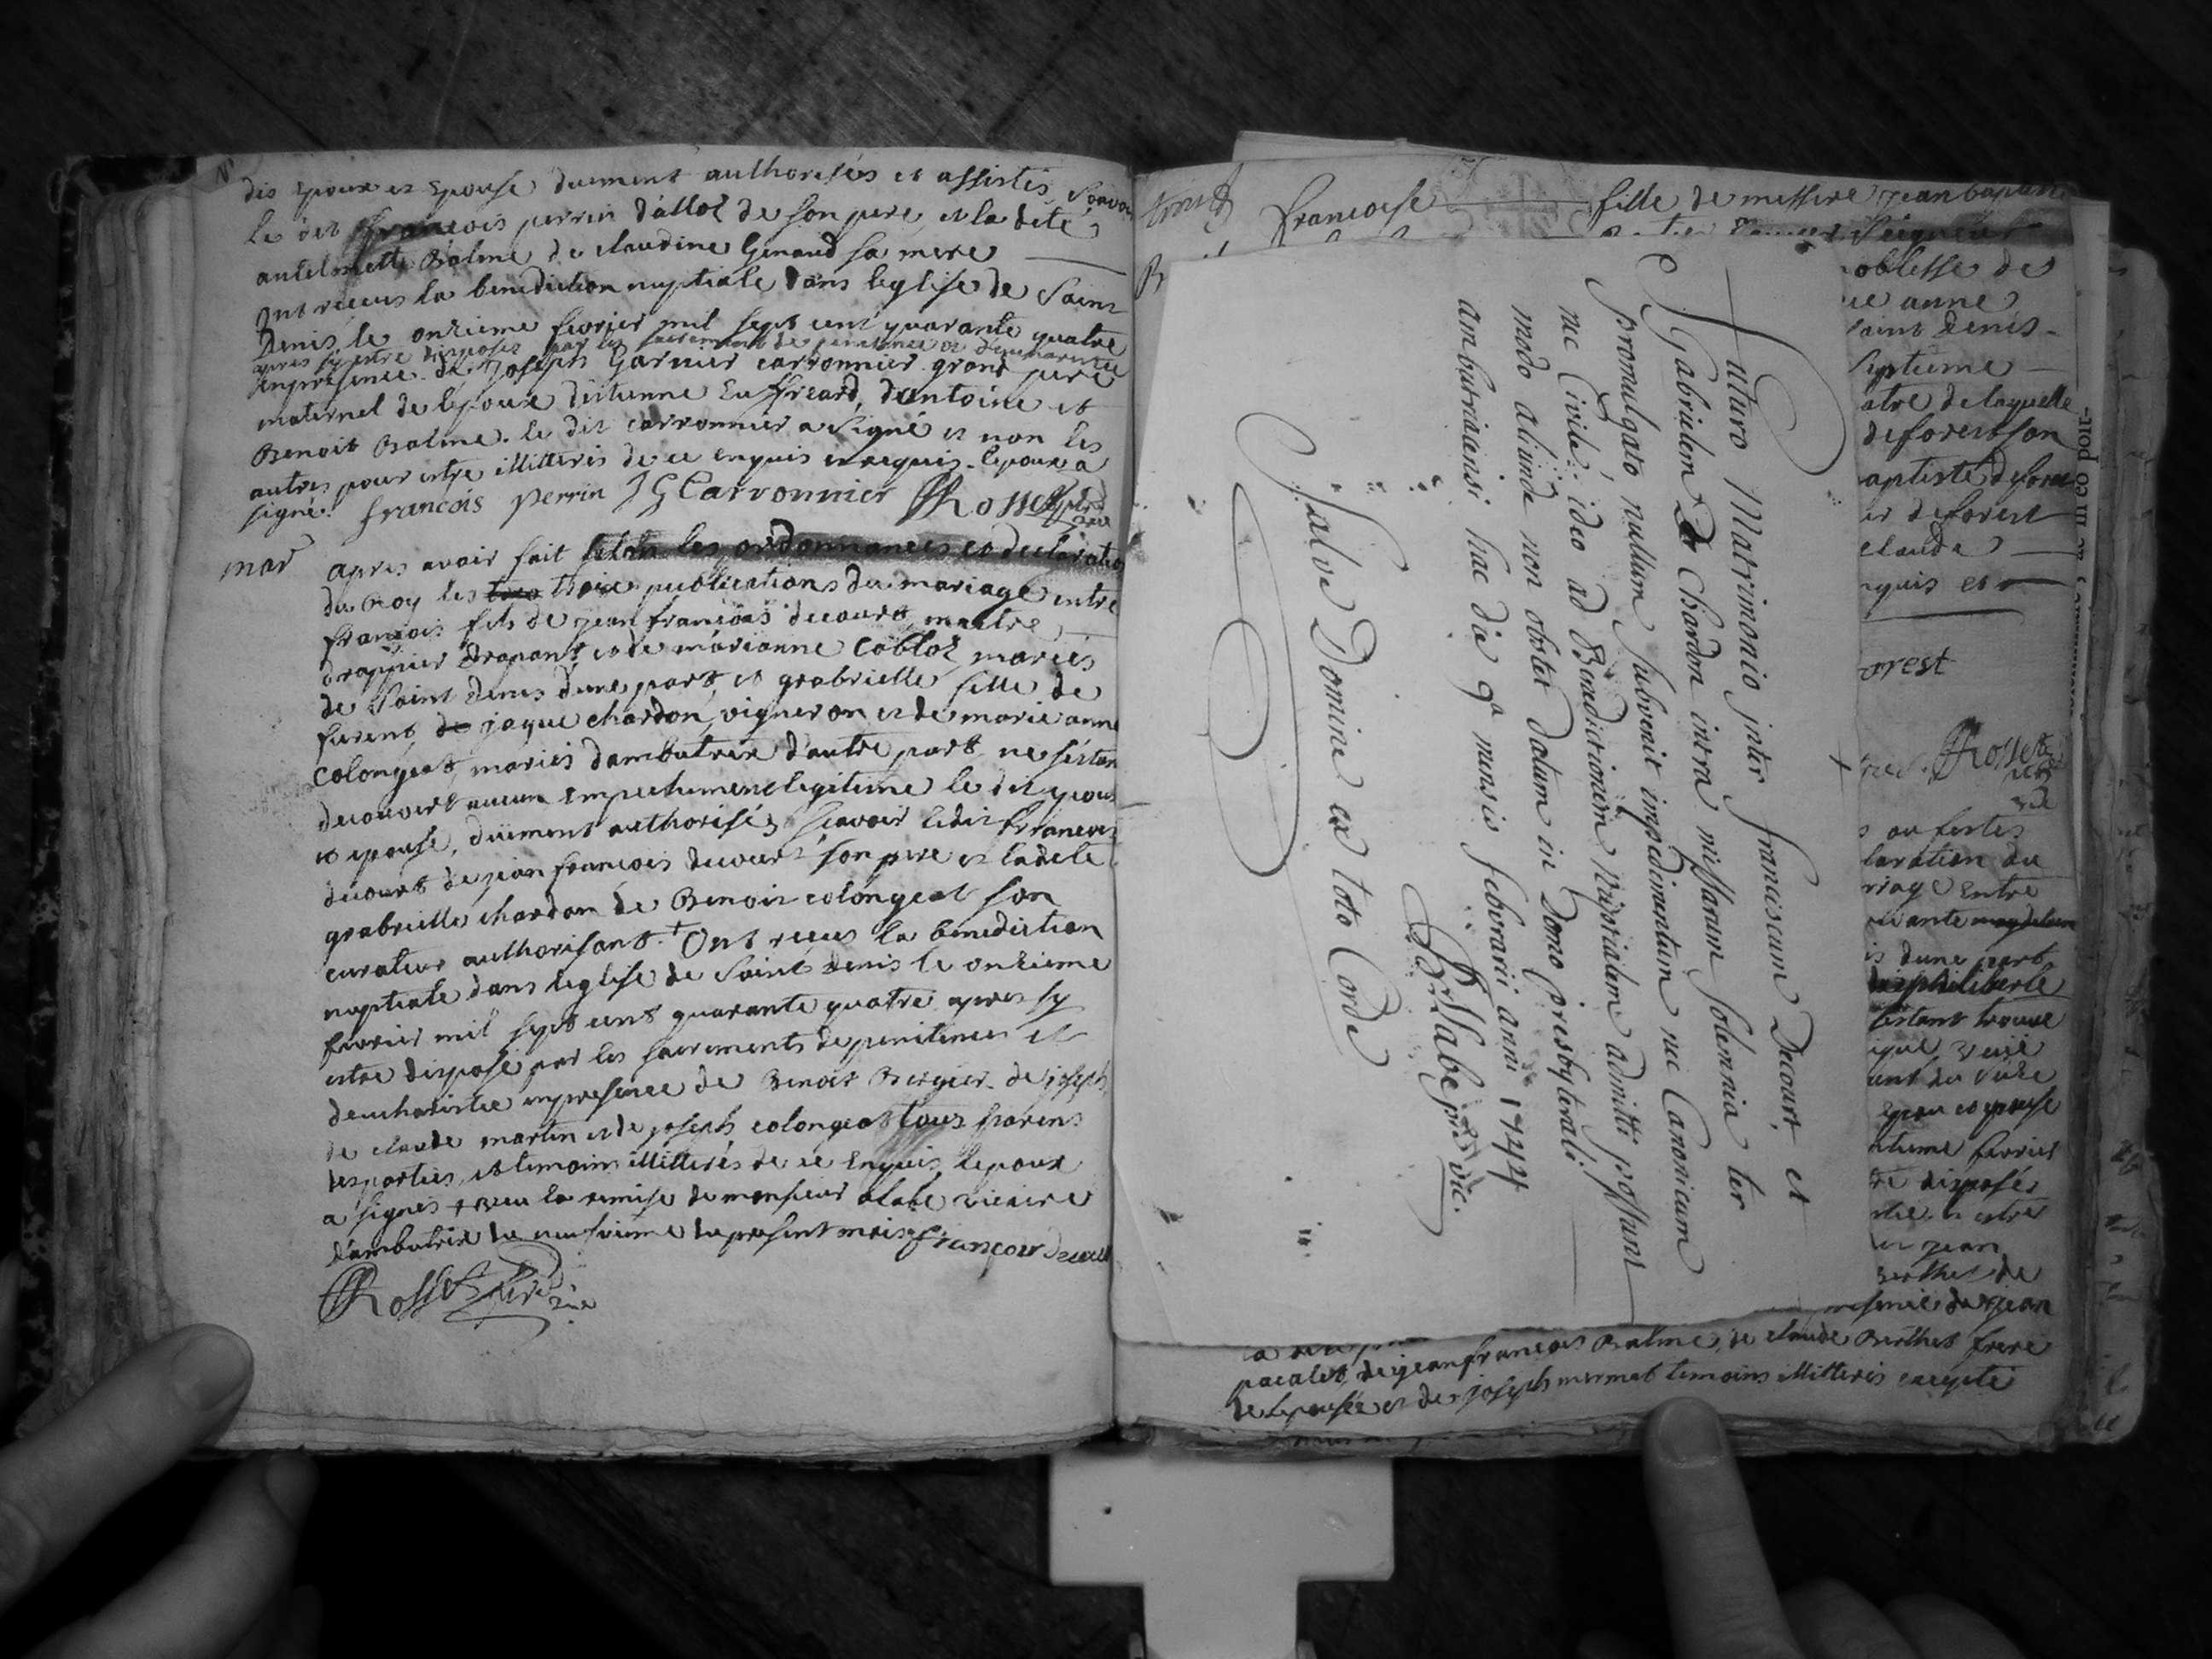 dis epoux et Epouse duement authorisés et assistés Scavoi
le dit francois perrin d'alloz de son pere, et la dete
antelmette Balme de claudine Genaud sa mere
ont reçeus la benediction nuptiale dans leglise de Saint
Denis, le onzieme fevrier mil sept cent quarante quatre
apres sy estre disposes par les sacrements de penitence et deucharistie
en presence de Joseph Garnier carronnier grand pere
maternel de lepoux d'etienne , dantoine et
Benoit Balme. le dit carronnier a signé et non les
autres pour estre illitterés de ce enquis et requis. lepoux a
signé. francois perrin J G Carronnier Rosset
mar apres avoir fait selon les ordonnances et declaratio
du Roy les trois publications du mariage entre
françois fils de jean françois decourt, maitre
drappier drapant et de marianne Cobloz, mariés
de Saint Denis dune part, et grabrielle fille de
furent, de jaque chardon, vigneron et de marie anne
Colongeat, mariés dambutrix d'autre part ne sestan
decouvert aucun empechement legitime le dit epoux
et epouse, düement authorisés, scavoir ledit francois
decourt de jean françois decourt son pere et ladete
grabrielle chardon de Benoit colongeat son
curateur authorisant. + Ont reçeus la benediction
nuptiale dans leglise de Saint denis le onzieme
fevrier mil sept cent quarante quatre apres sy
estre disposé par les sacrements de penitence et
deucharistie en presence de Benoit Bergier. de joseph
de claude martin et de joseph colongeat tous parens
des parties, et temoins illitterés de ce Enquis, lepoux
a signés + veu la remise de monsieur alabe vicaire
d'ambutrix du neufvieme du present mois françois decourt
Rosset
francoise fille de messire jean baptiste
Futuro Matrimonio jnter franciscum Decourt, et
Gabrielem De Chardon intra missarum solemnia ter
promulgato, nullum subvenit impedimentum nec Canonicum
nec Civile: ideo ad Benedictionem Nuptialem admitti possunt
modo aliunde non obstet datum in Domo presbyterali
ambutriacensi hac die 9a mensis februarii anni 1744
Alabe vic.
Salve Domine ex toto Corde
oblesse de
ue anne
saint Denis
septieme
atre delaquelle
deforest son
aptiste defore
er deforest
claude
nquis et
orest
Rosset
ou festes
laration du
riage Entre
is dune part
sestant trouvé
epouse
tieme fevrier
re disposés
jean
Berthet de
presence de jean
pacalet, de jean francois Balme, de claude Berthet frere
de lepouse et de joseph mermet temoins illitterés excepté